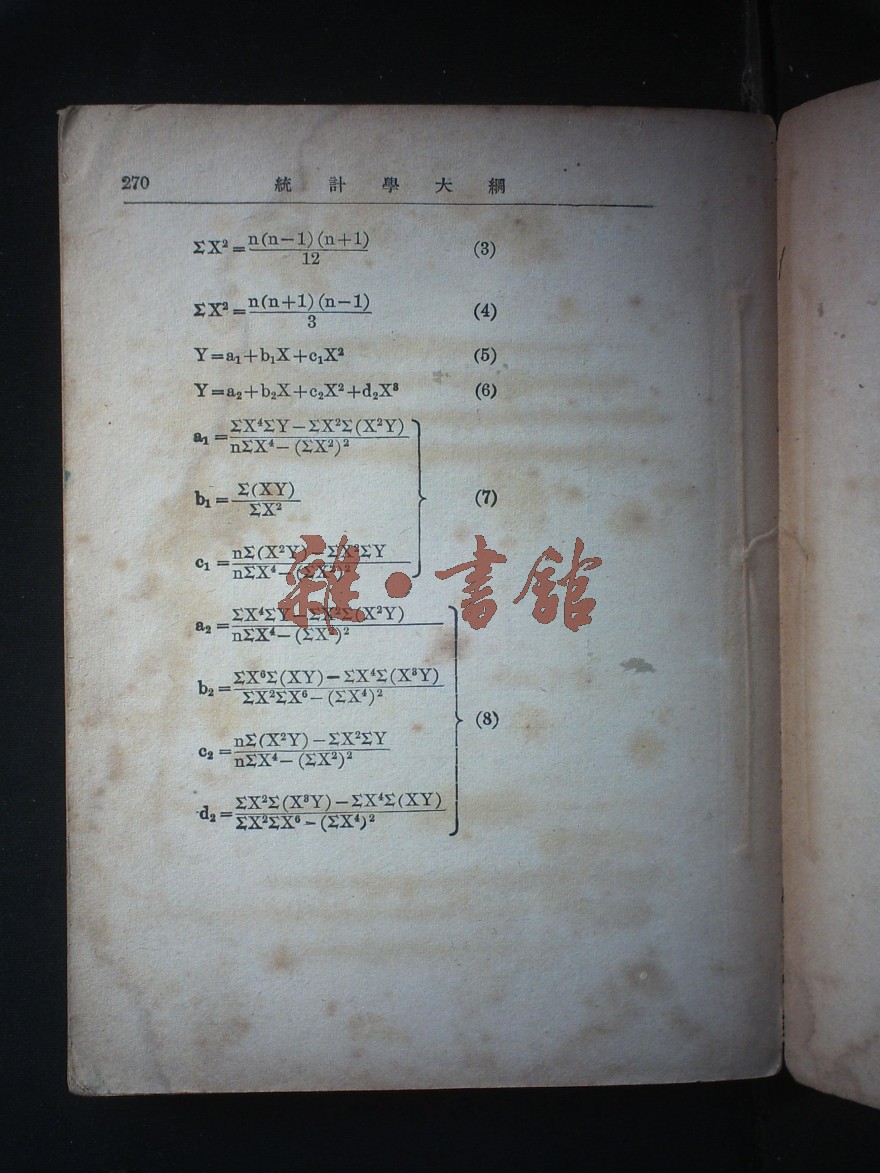 270 統計學大綱
ΣX²=n(n−1)(n+1)/12 (3)
ΣX²=n(n+1)(n−1)/3 (4)
Y=a₁+b₁X+c₁X² (5)
Y=a₂+b₂X+c₂X²+d₂X³ (6)
a₁=ΣX⁴ΣY−ΣX²Σ(X²Y)/nΣX⁴−(ΣX²)²
b₁=Σ(XY)/ΣX² (7)
c₁=nΣ(X²Y)−ΣX²ΣY/nΣX⁴−(ΣX²)²
雜·書館
a₂=ΣX⁴ΣY−ΣX²Σ(X²Y)/nΣX⁴−(ΣX²)²
b₂=ΣX⁶Σ(XY)−ΣX⁴Σ(X³Y)/ΣX²ΣX⁶−(ΣX⁴)²
(8)
c₂=nΣ(X²Y)−ΣX²ΣY/nΣX⁴−(ΣX²)²
d₂=ΣX²Σ(X³Y)−ΣX⁴Σ(XY)/ΣX²ΣX⁶−(ΣX⁴)²